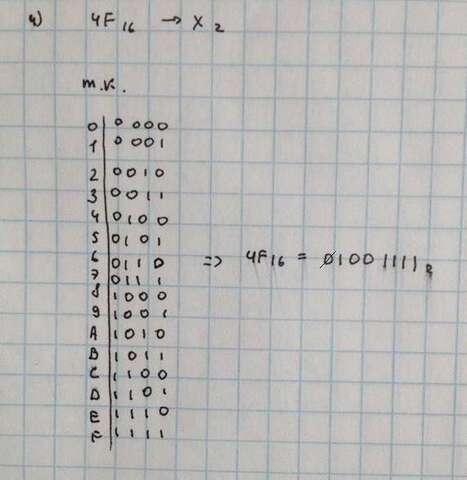 4) 4F₁₆ → X₂
т.к.
0 0000
1 0001
2 0010
3 0011
4 0100
5 0101
6 0110
7 0111
8 1000
9 1001
A 1010
B 1011
C 1100
D 1101
E 1110
F 1111
⇒ 4F₁₆ = 01001111₂